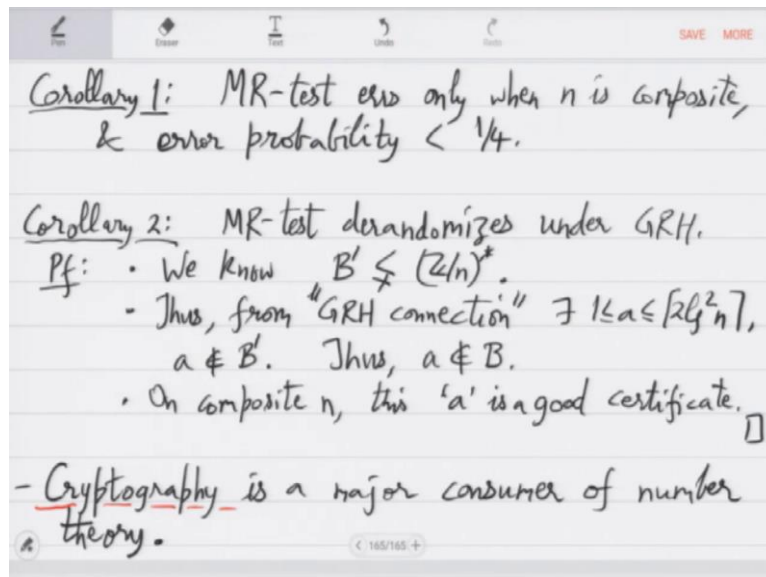 Pen Eraser Text Undo Redo SAVE MORE
Corollary 1: MR-test errs only when n is composite,
& error probability < 1/4.
Corollary 2: MR-test derandomizes under GRH.
Pf: · We know B' ≨ (ℤ/n)*.
- Thus, from "GRH connection" ∃ 1≤a≤⌈2lg²n⌉,
a ∉ B'. Thus, a ∉ B.
· On composite n, this 'a' is a good certificate. □
- Cryptography is a major consumer of number
theory.
< 165/165 +